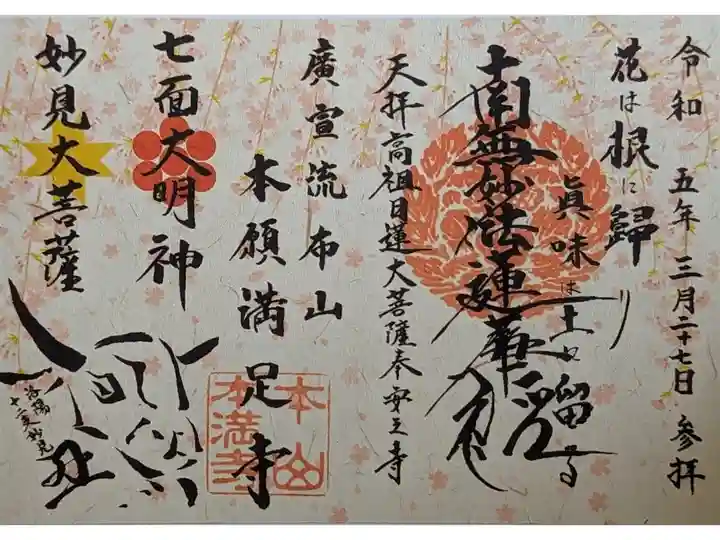 令和五年三月二十七日 参拝
花は根に歸り
眞味は土に留る
南無妙法蓮華経
天拝高祖日蓮大菩薩奉安之寺
廣宣流布山
本願満足寺
本山
本満寺
七面大明神
妙見大菩薩
洛陽
十二支妙見